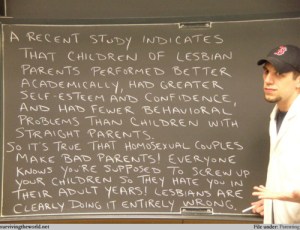 A RECENT STUDY INDICATES
THAT CHILDREN OF LESBIAN
PARENTS PERFORMED BETTER
ACADEMICALLY, HAD GREATER
SELF-ESTEEM AND CONFIDENCE,
AND HAD FEWER BEHAVIORAL
PROBLEMS THAN CHILDREN WITH
STRAIGHT PARENTS.
SO IT'S TRUE THAT HOMOSEXUAL COUPLES
MAKE BAD PARENTS! EVERYONE
KNOWS YOU'RE SUPPOSED TO SCREW UP
YOUR CHILDREN SO THEY HATE YOU IN
THEIR ADULT YEARS! LESBIANS ARE
CLEARLY DOING IT ENTIRELY WRONG.
B
survivingtheworld.net
File under: Parenting